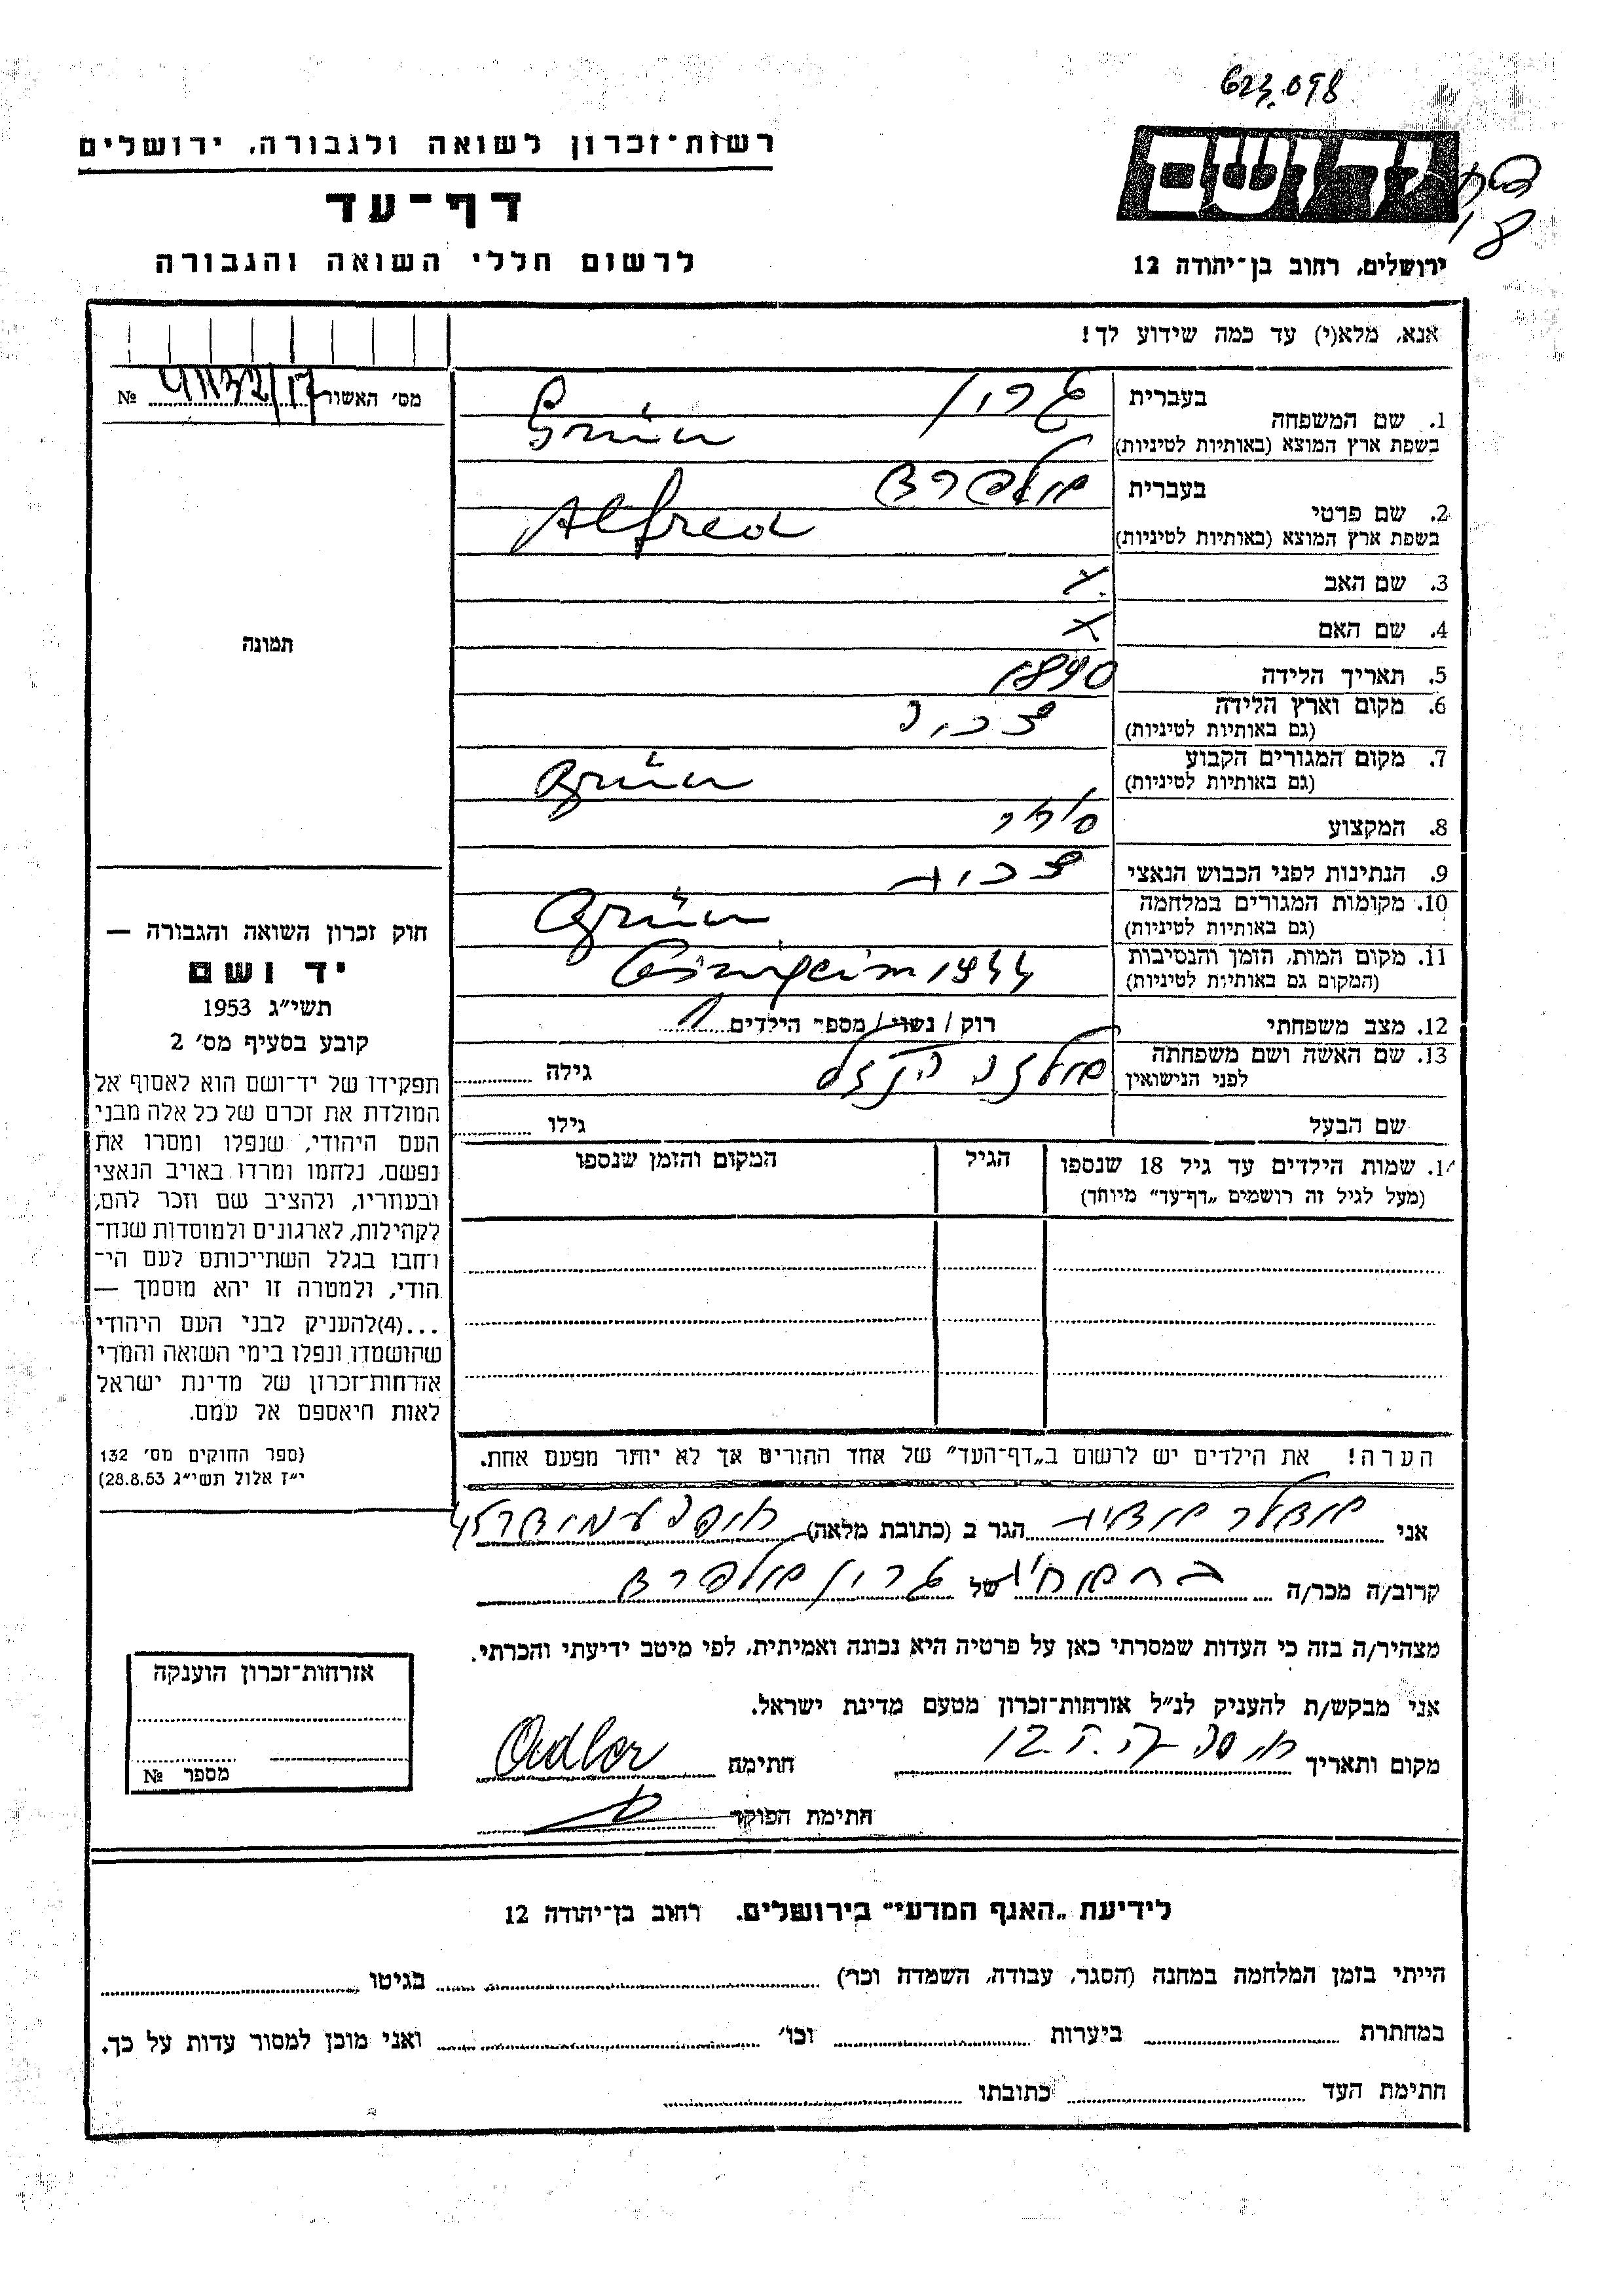 623.098
רשות־זכרון לשואה ולגבורה, ירושלים
יד ושם
דף־עד
לרשום חללי השואה והגבורה
ירושלים, רחוב בן־יהודה 12
אנא, מלא(י) עד כמה שידוע לך!
מס׳ האשור №
בעברית
1. שם המשפחה
גרין
בשפת ארץ המוצא (באותיות לטיניות)
Grün
בעברית
אלפרד
2. שם פרטי
בשפת ארץ המוצא (באותיות לטיניות)
Alfred
3. שם האב
x
4. שם האם
x
תמונה
5. תאריך הלידה
1890
6. מקום וארץ הלידה
(גם באותיות לטיניות)
7. מקום המגורים הקבוע
(גם באותיות לטיניות)
Brünn
8. המקצוע
סוחר
9. הנתינות לפני הכבוש הנאצי
צכית
10. מקומות המגורים במלחמה
(גם באותיות לטיניות)
Brünn
11. מקום המות, הזמן והנסיבות
(המקום גם באותיות לטיניות)
1944
12. מצב משפחתי
רוק / נשוי / מספר הילדים 1
13. שם האשה ושם משפחתה
לפני הנישואין
גילה
שם הבעל
גילו
14. שמות הילדים עד גיל 18 שנספו
(מעל לגיל זה רושמים „דף־עד״ מיוחד)
הגיל
המקום והזמן שנספו
חוק זכרון השואה והגבורה —
יד ושם
תשי״ג 1953
קובע בסעיף מס׳ 2
תפקידו של יד־ושם הוא לאסוף אל
המולדת את זכרם של כל אלה מבני
העם היהודי, שנפלו ומסרו את
נפשם, נלחמו ומרדו באויב הנאצי
ובעוזריו, ולהציב שם וזכר להם,
לקהילות, לארגונים ולמוסדות שנח־
רחבו בגלל השתייכותם לעם הי־
הודי, ולמטרה זו יהא מוסמך —
...(4)להעניק לבני העם היהודי
שהושמדו ונפלו בימי השואה והמרי
אזרחות־זכרון של מדינת ישראל
לאות היאספם אל עמם.
(ספר החוקים מס׳ 132
י״ז אלול תשי״ג 28.8.53)
הערה! את הילדים יש לרשום ב„דף־העד״ של אחד ההורים אך לא יותר מפעם אחת.
אני אדלר אדית הגר ב (כתובת מלאה)
קרוב/ה מכר/ה של גרין אלפרד
מצהיר/ה בזה כי העדות שמסרתי כאן על פרטיה היא נכונה ואמיתית, לפי מיטב ידיעתי והכרתי.
אני מבקש/ת להעניק לנ״ל אזרחות־זכרון מטעם מדינת ישראל.
מקום ותאריך חיפה חתימה Adler
חתימת הפוקד
אזרחות־זכרון הוענקה
מספר №
לידיעת „האגף המדעי״ בירושלים, רחוב בן־יהודה 12
הייתי בזמן המלחמה במחנה (הסגר, עבודה, השמדה וכו׳) בגיטו
במחתרת ביערות וכו׳ ואני מוכן למסור עדות על כך.
חתימת העד כתובתו